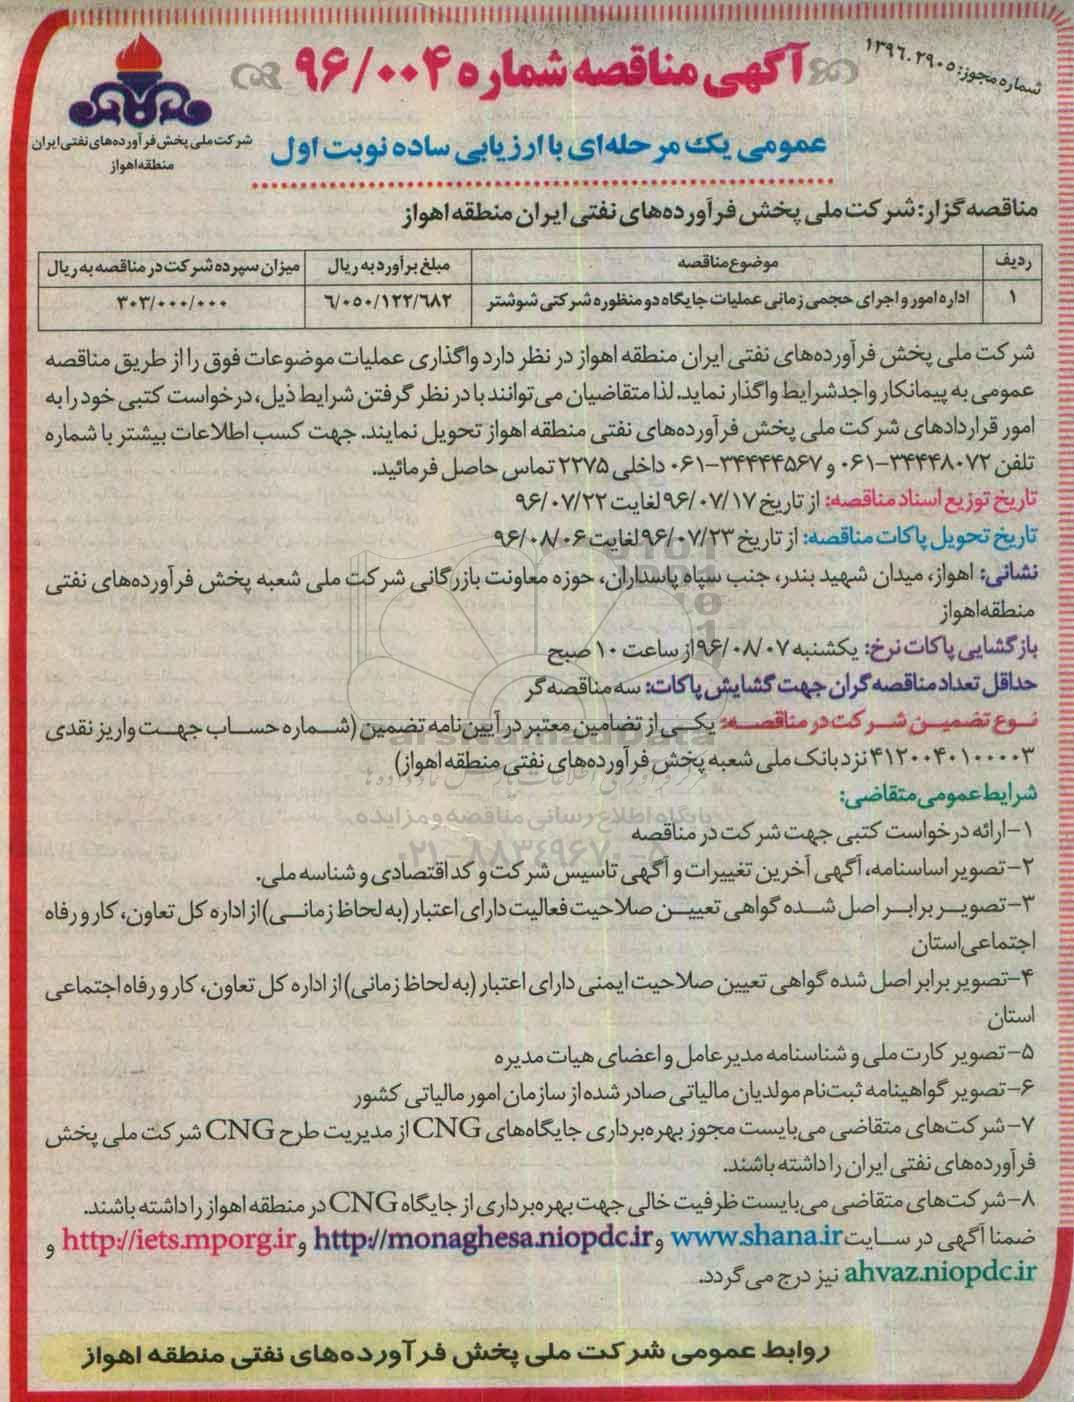 شماره مجوز: ۱۳۹۶.۲۹۰۵
آگهی مناقصه شماره ۹۶/۰۰۴
عمومی یک مرحله‌ای با ارزیابی ساده نوبت اول
شرکت ملی پخش فرآورده‌های نفتی ایران
منطقه اهواز
مناقصه گزار: شرکت ملی پخش فرآورده‌های نفتی ایران منطقه اهواز
ردیف موضوع مناقصه مبلغ برآورد به ریال میزان سپرده شرکت در مناقصه به ریال
۱ اداره امور و اجرای حجمی زمانی عملیات جایگاه دو منظوره شرکتی شوشتر ۶/۰۵۰/۱۲۲/۶۸۲ ۳۰۳/۰۰۰/۰۰۰
شرکت ملی پخش فرآورده‌های نفتی ایران منطقه اهواز در نظر دارد واگذاری عملیات موضوعات فوق را از طریق مناقصه
عمومی به پیمانکار واجدشرایط واگذار نماید. لذا متقاضیان می‌توانند با در نظر گرفتن شرایط ذیل، درخواست کتبی خود را به
امور قراردادهای شرکت ملی پخش فرآورده‌های نفتی منطقه اهواز تحویل نمایند. جهت کسب اطلاعات بیشتر با شماره
تلفن ۳۴۴۴۸۰۷۲-۰۶۱ و ۳۴۴۴۴۵۶۷-۰۶۱ داخلی ۲۲۷۵ تماس حاصل فرمائید.
تاریخ توزیع اسناد مناقصه: از تاریخ ۹۶/۰۷/۱۷ لغایت ۹۶/۰۷/۲۲
تاریخ تحویل پاکات مناقصه: از تاریخ ۹۶/۰۷/۲۳ لغایت ۹۶/۰۸/۰۶
نشانی: اهواز، میدان شهید بندر، جنب سپاه پاسداران، حوزه معاونت بازرگانی شرکت ملی شعبه پخش فرآورده‌های نفتی
منطقه اهواز
بازگشایی پاکات نرخ: یکشنبه ۹۶/۰۸/۰۷ از ساعت ۱۰ صبح
حداقل تعداد مناقصه گران جهت گشایش پاکات: سه مناقصه گر
نوع تضمین شرکت در مناقصه: یکی از تضامین معتبر در آیین‌نامه تضمین (شماره حساب جهت واریز نقدی
۴۱۲۰۰۴۰۱۰۰۰۰۳ نزد بانک ملی شعبه پخش فرآورده‌های نفتی منطقه اهواز)
شرایط عمومی متقاضی:
پایگاه اطلاع رسانی مناقصه و مزایده
۱-ارائه درخواست کتبی جهت شرکت در مناقصه
۲-تصویر اساسنامه، آگهی آخرین تغییرات و آگهی تاسیس شرکت و کد اقتصادی و شناسه ملی.
۳-تصویر برابر اصل شده گواهی تعیین صلاحیت فعالیت دارای اعتبار (به لحاظ زمانی) از اداره کل تعاون، کار و رفاه
اجتماعی استان
۴-تصویر برابر اصل شده گواهی تعیین صلاحیت ایمنی دارای اعتبار (به لحاظ زمانی) از اداره کل تعاون، کار و رفاه اجتماعی
استان
۵-تصویر کارت ملی و شناسنامه مدیرعامل و اعضای هیات مدیره
۶-تصویر گواهینامه ثبت‌نام مولدیان مالیاتی صادر شده از سازمان امور مالیاتی کشور
۷-شرکت‌های متقاضی می‌بایست مجوز بهره‌برداری جایگاه‌های CNG از مدیریت طرح CNG شرکت ملی پخش
فرآورده‌های نفتی ایران را داشته باشند.
۸-شرکت‌های متقاضی می‌بایست ظرفیت خالی جهت بهره‌برداری از جایگاه CNG در منطقه اهواز را داشته باشند.
ضمنا آگهی در سایت www.shana.ir و http://monaghesa.niopdc.ir و http://iets.mporg.ir و
ahvaz.niopdc.ir نیز درج می گردد.
روابط عمومی شرکت ملی پخش فرآورده‌های نفتی منطقه اهواز